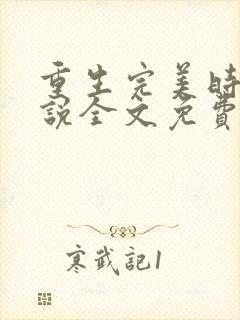 重生完美時
說全文免費
寒武記1